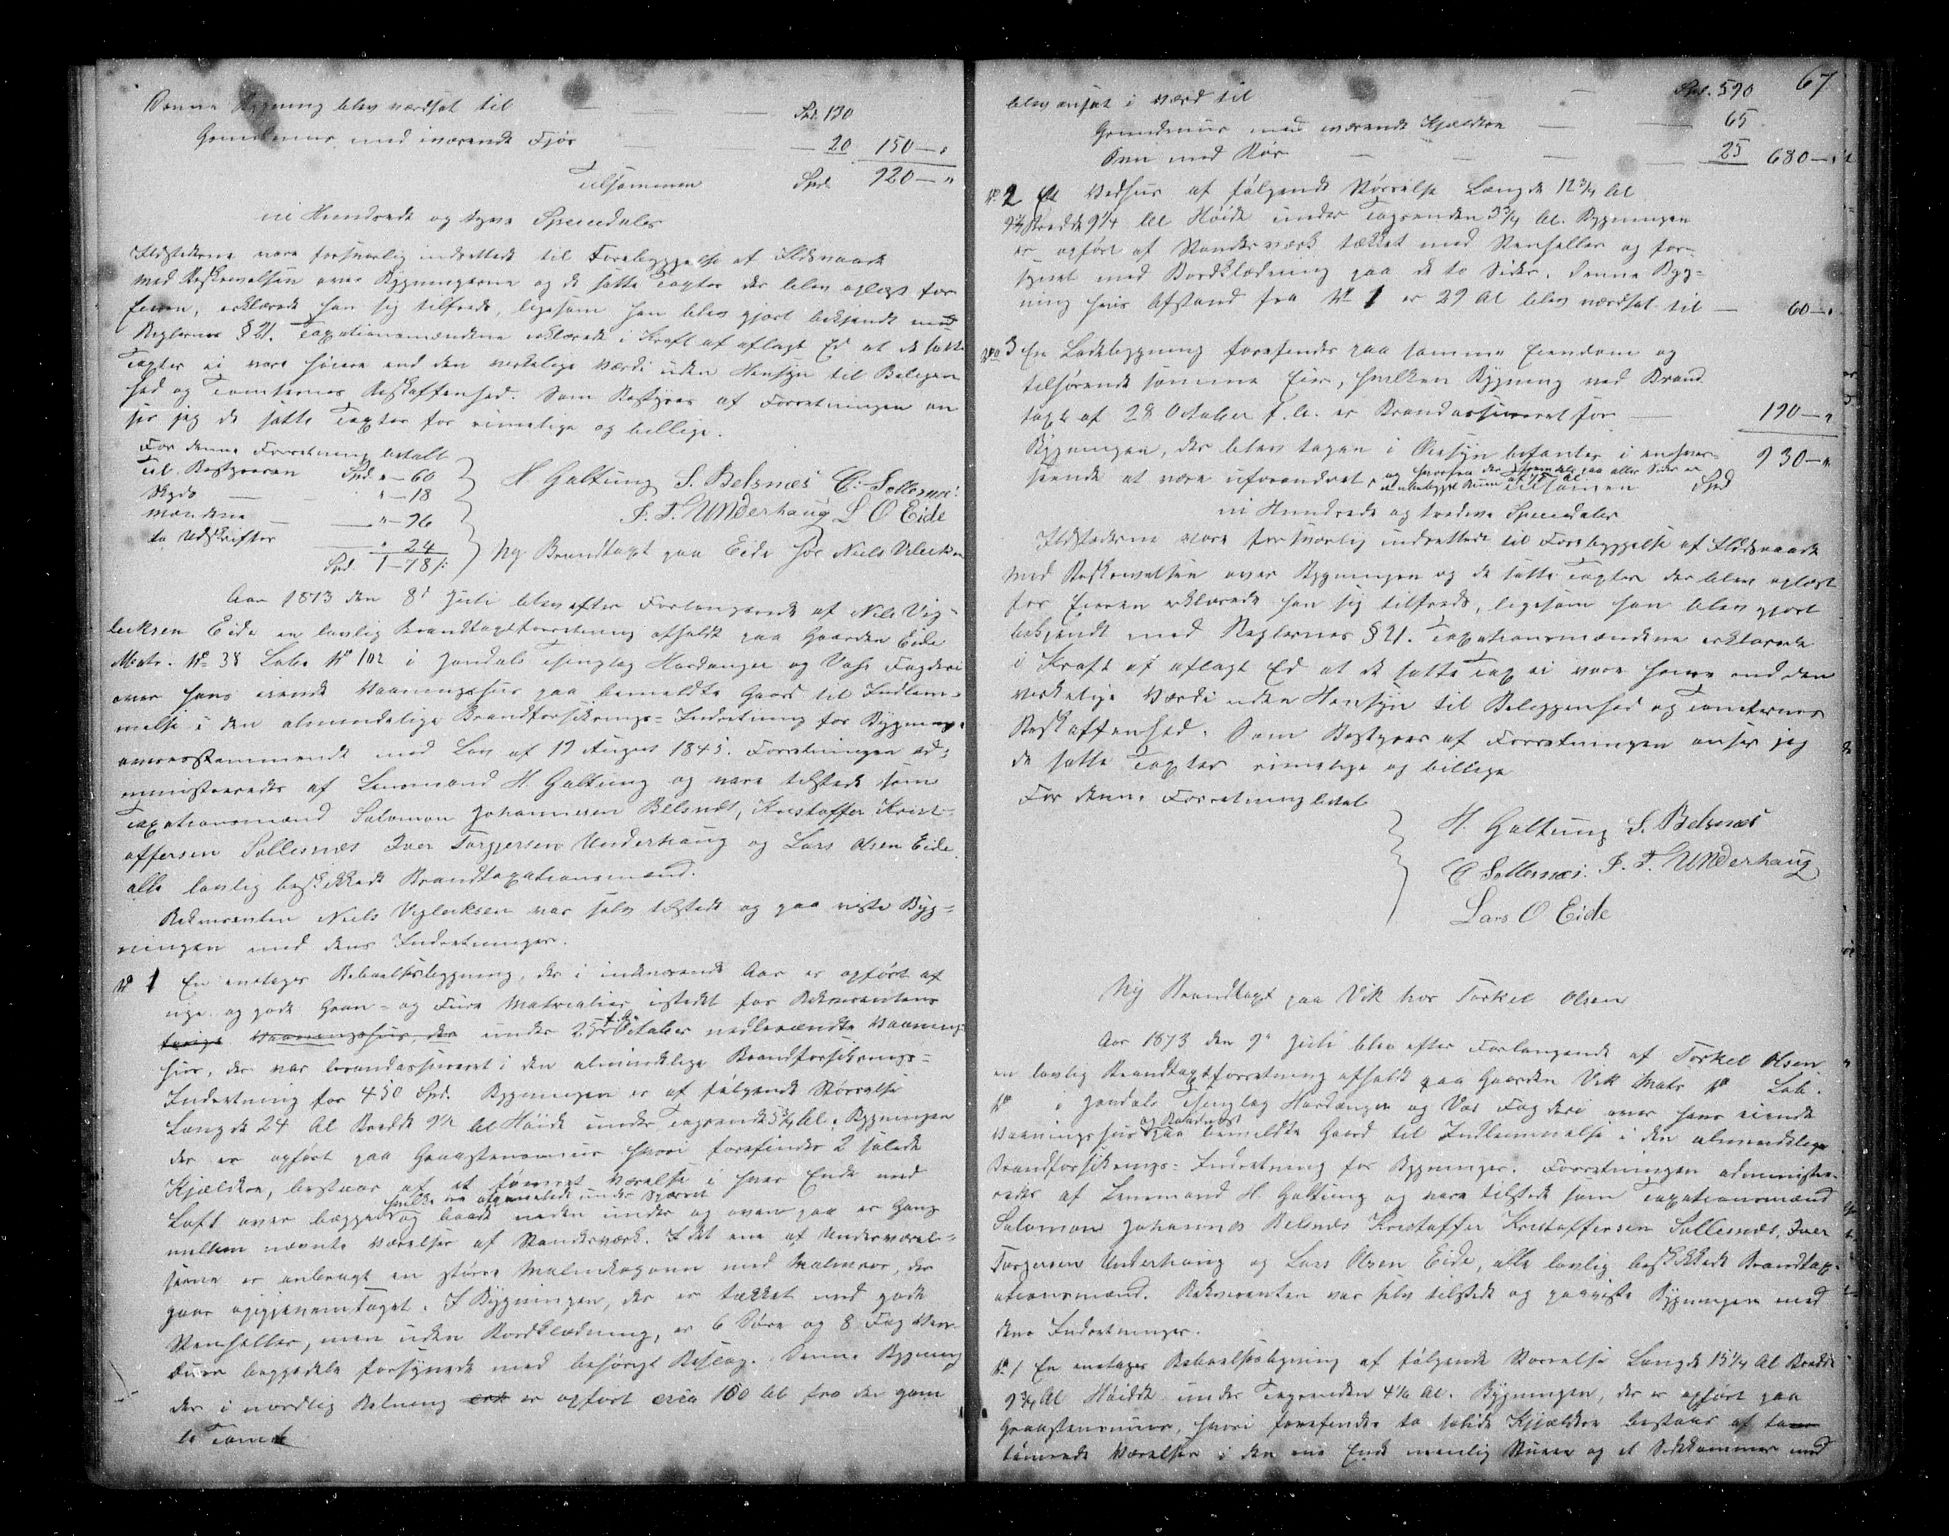 Denne Bygning blev værdsat til — — Spd. 130
Grundmur med iværende Fjøs — — 20 150 — "
Tilsammen Spd. 920 — "
ni Hundrede og tyve Speciedaler
Ildstederne vare forsvarlig indrettede til Forebyggelse af Ildsvaade
Med Beskrivelsen over Bygningerne og de satte Taxter der blev oplæst for
Eieren, erklærede han sig tilfreds, ligesom han blev gjort bekjendt med
Reglernes § 21. Taxationsmændene erklærede i Kraft af aflagt Ed at de satte
Taxter ei vare høiere end den virkelige Værdi uden Hensyn til Beliggen
hed og Tomternes Beskaffenhed. Som Bestyrer af Forretningen an
ser jeg de satte Taxter for rimelige og billige.
For denne Forretning betalt
Til Bestyreren Spd. " — 60
Skyds — " — 18
Mændene — " — 96
to Udskrifter — " 24
Spd. 1 — 78 /:
H Galtung S. Belsnæs C. Sollesnæs.
I. T. Underhaug L O Eide
Ny Brandtaxt paa Eide hos Niels Vilecksen
Aar 1873 den 8d Juli blev efter Forlangende af Niels Vig-
lecksen Eide en lovlig Brandtaxtforretning afholdt paa Gaarden Eide
Matr. No 38 Løbe No 102 i Jondals Thinglag Hardanger og Vos's Fogderi
over hans eiende Vaaningshus paa bemeldte Gaard til Indlem-
melse i den almindelige Brandforsikrings-Indretning for Bygninger
overensstemmende med Lov af 19 August 1845. Forretningen ad-
ministreredes af Lensmand H. Galtung og vare tilstede som
Taxationsmænd Salomon Johannesen Belsnæs, Kristoffer Krist-
offersen Sollesnæs Iver Torgersen Underhaug og Lars Olsen Eide
alle lovlig beskikkede Brandtaxationsmænd.
Rekvirenten Niels Viglecksen var selv tilstede og paa viste Byg-
ningen med dens Indretninger.
No 1 En enetages Beboelsesbygning, der i indeværende Aar er opført af
nye og gode Gran- og Furu Materialier istedet for Rekvirentens
forrige Vaaningshus, der under 25de f. A. October nedbrændte Vaanings
hus, der var brandassureret i den almindelige Brandforsikrings-
Indretning for 450 Spd. Bygningen er af følgende Størrelse
Længde 24 Al Bredde 9½ Al Høide under Tagrende 5¾ Al. Bygningen
der er opført paa Graastensmur hvori forefindes 2 solide
Kjældere, bestaar af et tømret Værelse i hver Ende med
Loft over begge hvilke ere afpanelede under Sperret og baade neden under og oven paa er Gang
mellem nævnte Værelser af Standerværk. I det ene af Underværel-
serne er anbragt en større Malmkogovn med Malmrør, der
gaar op igjennem Taget. I Bygningen, der er tækket med gode
Stenheller, men uden Bordklædning, er 6 Døre og 8 Fag Vin-
duer beggedele forsynede med behørigt Beslag. Denne Bygning
der i nordlig Retning er opført circa 100 Al fra den gam
le Tomt
67
blev ansat i Værd til — — Spd. 590
Grundmur med værende Kjældere — — 65
Ovn med Rør — — 25 680 — "
No 2 Et Vedhus af følgende Størrelse Længde 12¾ Al
Bredde 9¼ Al Høide under Tagrenden 3¾ Al. Bygningen
er opført af Standerværk tækket med Stenheller og for-
synet med Bordklædning paa de to Sider. Denne Byg-
ning hvis Afstand fra No 1 er 29 Al blev værdsat til — 60 — "
No 3 En Ladebygning forefindes paa samme Eiendom og
tilhørende samme Eier, hvilken Bygning ved Brand
taxt af 28 October f. A. er Brandassureret for — 190 — "
Bygningen, der blev tagen i Øiesyn befantes i enhver- 930 — "
seende at være uforandret, og hvorfra der fremdeles paa alle Sider er
ubebygget Rum af 75 Al. Tilsamen Spd
ni Hundrede og tredive Speciedaler
Ildstederne vare forsvarlig indrettede til Forebyggelse af Ildsvaade
Med Beskrivelsen over Bygningen og de satte Taxter der blev oplæst
for Eieren erklærede han sig tilfreds, ligesom han blev gjort
bekjendt med Reglernes § 21. Taxationsmændene erklærede
i Kraft af aflagt Ed at de satte Tax ei vare høiere end den
virkelige Værdi uden Hensyn til Beliggenhed og Tomternes
Beskaffenhed. Som Bestyrer af Forretningen anser jeg
de satte Taxter rimelige og billige
For denne Forretning betal
H. Galtung S. Belsnæs
C Sollesnæs. I. T. Underhaug
Lars O Eide
Ny Brandtaxt paa Vik hos Torkel Olsen
Aar 1873 den 9d Juli blev efter Forlangende af Torkel Olsen
en lovlig Brandtaxtforretning afholdt paa Gaarden Vik Matr No Løb.
No i Jondals Thinglag Hardanger og Vos Fogderi over hans eiende
Vaaningshus paa bemeldte Gaard til Indlemmelse i den almindelige
Brandforsikrings-Indretning for Bygninger. Forretningen administre-
redes af Lensmand H. Galtung og vare tilstede som Taxationsmænd
Salomon Johannes Belsnæs Kristoffer Kristoffersen Sollesnæs, Iver
Torgersen Underhaug og Lars Olsen Eide, alle lovlig beskikkede Brandtax-
ationsmænd. Rekvirenten var selv tilstede og paaviste Bygningen med
dens Indretninger.
No 1 En enetages Beboelsesbygning af følgende Størrelse Længde 15¼ Al Bredde
9¾ Al Høide under Tagrenden 4½ Al. Bygningen, der er opført paa
Graastensmur, hvori forefindes to solide Kjældere bestaar af
tømrede Værelser i den ene Ende nemlig Stuen og et Sidekammer med